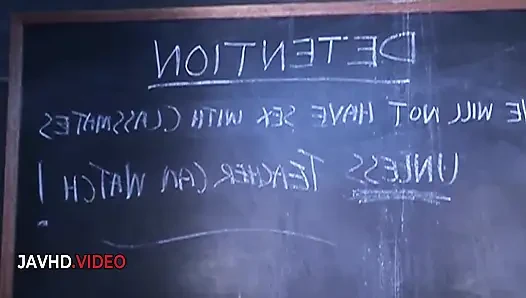 DETENTION
WE WILL NOT HAVE SEX WITH CLASSMATES
UNLESS TEACHER CAN WATCH!
JAVHD.VIDEO